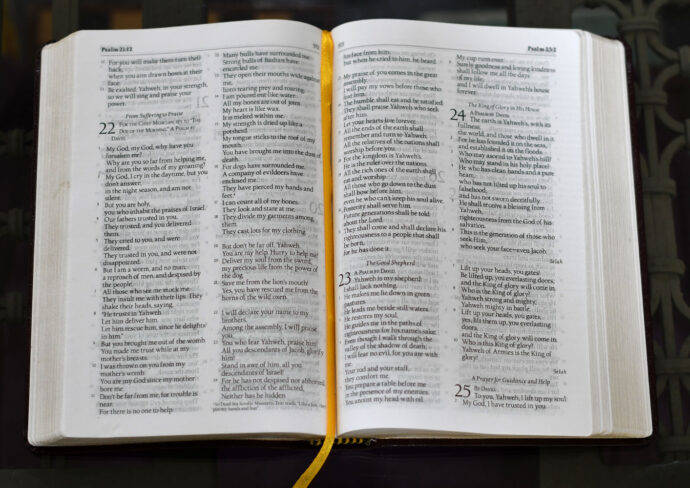 Psalm 21:12
For you will make them turn their
back,
when you aim drawn bows at their
face.
Be exalted, Yahweh, in your strength,
so we will sing and praise your
power.
From Suffering to Praise
22 FOR THE CHIEF MUSICIAN; SET TO "THE
DOE OF THE MORNING." A PSALM BY
DAVID.
My God, my God, why have you
forsaken me?
Why are you so far from helping me,
and from the words of my groaning?
My God, I cry in the daytime, but you
don't answer;
in the night season, and am not
silent.
But you are holy,
you who inhabit the praises of Israel.
Our fathers trusted in you.
They trusted, and you delivered
them.
They cried to you, and were
delivered.
They trusted in you, and were not
disappointed.
But I am a worm, and no man;
a reproach of men, and despised by
the people.
All those who see me mock me.
They insult me with their lips. They
shake their heads, saying,
"He trusts in Yahweh.
Let him deliver him.
Let him rescue him, since he delights
in him."
But you brought me out of the womb.
You made me trust while at my
mother's breasts.
I was thrown on you from my
mother's womb.
You are my God since my mother
bore me.
Don't be far from me, for trouble is
near.
For there is no one to help.
Many bulls have surrounded me.
Strong bulls of Bashan have
encircled me.
They open their mouths wide against
me,
lions tearing prey and roaring.
I am poured out like water.
All my bones are out of joint.
My heart is like wax.
It is melted within me.
My strength is dried up like a
potsherd.
My tongue sticks to the roof of my
mouth.
You have brought me into the dust of
death.
For dogs have surrounded me.
A company of evildoers have
enclosed me.
They have pierced my hands and
feet.
I can count all of my bones.
They look and stare at me.
They divide my garments among
them.
They cast lots for my clothing.
But don't be far off, Yahweh.
You are my help. Hurry to help me!
Deliver my soul from the sword,
my precious life from the power of
the dog.
Save me from the lion's mouth!
Yes, you have rescued me from the
horns of the wild oxen.
I will declare your name to my
brothers.
Among the assembly, I will praise
you.
You who fear Yahweh, praise him!
All you descendants of Jacob, glorify
him!
Stand in awe of him, all you
descendants of Israel!
For he has not despised nor abhorred
the affliction of the afflicted,
Neither has he hidden
Psalm 25:2
his face from him;
but when he cried to him, he heard.
My praise of you comes in the great
assembly.
I will pay my vows before those who
fear him.
The humble shall eat and be satisfied.
They shall praise Yahweh who seek
after him.
Let your hearts live forever.
All the ends of the earth shall
remember and turn to Yahweh.
All the relatives of the nations shall
worship before you.
For the kingdom is Yahweh's.
He is the ruler over the nations.
All the rich ones of the earth shall
eat and worship.
All those who go down to the dust
shall bow before him,
even he who can't keep his soul alive.
Posterity shall serve him.
Future generations shall be told
about the Lord.
They shall come and shall declare his
righteousness to a people that shall
be born,
for he has done it.
The Good Shepherd
23 A PSALM BY DAVID.
Yahweh is my shepherd;
I shall lack nothing.
He makes me lie down in green
pastures.
He leads me beside still waters.
He restores my soul.
He guides me in the paths of
righteousness for his name's sake.
Even though I walk through the
valley of the shadow of death,
I will fear no evil, for you are with
me.
Your rod and your staff,
they comfort me.
You prepare a table before me
in the presence of my enemies.
You anoint my head with oil.
My cup runs over.
Surely goodness and loving kindness
shall follow me all the days
of my life,
and I will dwell in Yahweh's house
forever.
The King of Glory in His House
24 A PSALM BY DAVID.
The earth is Yahweh's, with its
fullness;
the world, and those who dwell in it.
For he has founded it on the seas,
and established it on the floods.
Who may ascend to Yahweh's hill?
Who may stand in his holy place?
He who has clean hands and a pure
heart;
who has not lifted up his soul to
falsehood,
and has not sworn deceitfully.
He shall receive a blessing from
Yahweh,
righteousness from the God of his
salvation.
This is the generation of those who
seek Him,
who seek your face—even Jacob.
Selah
Lift up your heads, you gates!
Be lifted up, you everlasting doors,
and the King of glory will come in.
Who is the King of glory?
Yahweh strong and mighty,
Yahweh mighty in battle.
Lift up your heads, you gates;
yes, lift them up, you everlasting
doors,
and the King of glory will come in.
Who is this King of glory?
Yahweh of Armies is the King of
glory!
Selah
A Prayer for Guidance and Help
25 BY DAVID.
To you, Yahweh, I lift up my soul.
My God, I have trusted in you.